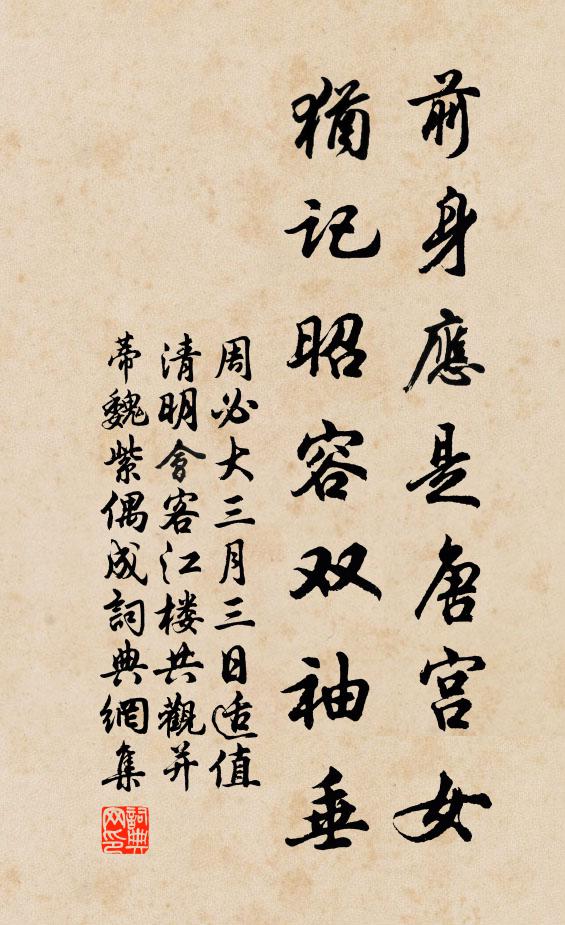 前身應是唐宫女
猶記昭容双袖垂
周必大三月三日适值
清明會客江楼共觀并
蒂魏紫偶成詞典網集
詞典网印